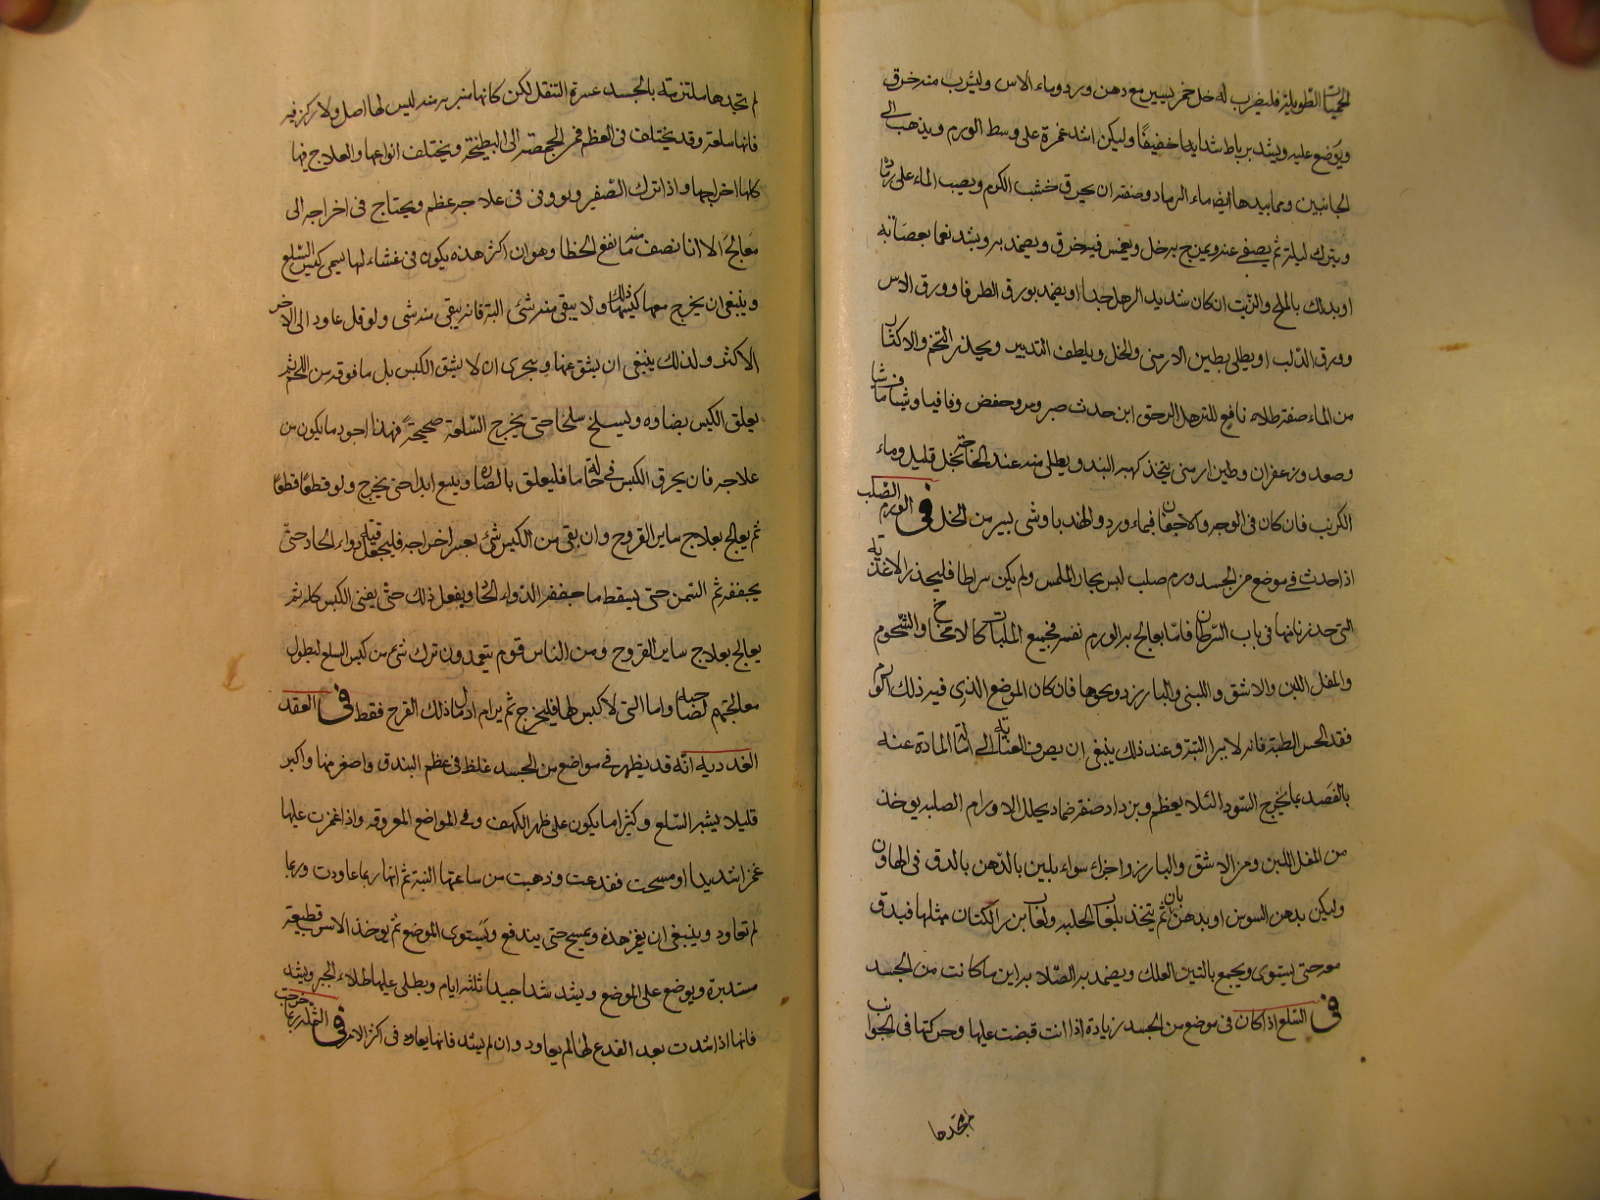 الحميات الطويلة فليضرب له خل خمر يسير مع دهن ورد وماء الاس وليشرب منه خرق
ويوضع عليه ويشد برباط شدايدا خفيفا وليكن اشد غمرة على وسط الورم ويذهب الى
الجانبين ومما يبدها ايضا ماء الرماد وصنفته ان يحرق خشب الكرم ويصب الماء على رماده
ويترك ليلة ثم يصفى عنه ويمزج به خل ويغمس فيه خرق ويضمد به ويشد نعما بعصابة
او يدلك بالملح والزيت ان كان شديد الرهل جدا او يضمد بورق الطرفا وورق الاس
وورق الدلب او يطلى بطين الارمنى والخل ويلطف التدبير ويحذر التخم والاكثار
من الماء صفة طلاء نافع للترهل الرحق ابن حدث صبر ومر وحفض وفاقيا وشياف ماميثا
وصعد وزعفران وطين ارمنى يتخذ كهيه البند ويطلى منه عند الحاجة بخل قليل وماء
الكرنب فان كان فى الوجه والاجفان فبماء ورد والهندبا وشى يسير من الخل فى الورم الصلب
اذا حدث فى موضع من الجسد ورم صلب ليس بحار الملمس ولم يكن سرطانا فليحذر الاغذية
التى حذرنا منها فى باب السرطان فاما يعالج به الورم نفسه فجميع الملينات كالامخاخ والشحوم
والمقل اللين والاشق واللبنى والبارزد ونحوها فان كان الموضع الذى فيه ذلك الورم
فقد الحس البتة فانه لا يبرا البتة وعند ذلك ينبغى ان يصرف العناية الى امالة المادة عنه
بالفصد بما يخرج السودا لئلا يعظم ويزداد صفة ضماد يحلل الاورام الصلبة يوخذ
من المقل اللين ومن الاشق والبارزد اجزاء سواء يلين بالدهن بالدق فى الهاون
وليكن بدهن السوسن او بدهن بان ثم يتخذ بلعاب الحلبه ولعاب بزر الكتان مثلها فيدق
معه حتى يستوى ويجمع بالتين العلك ويضمد به الصلابه اين ما كانت من الجسد
فى السلع اذا كان فى موضع من الجسد زيادة اذا انت قبضت عليها وحركتها فى الجوانب
لم تجدها
لم تجدها ملتزمة بالجسد عسرة التنقل لكن كانها متبرية منه ليس لها اصل ولا ركز فيه
فانها سلعة وقد يختلف فى العظم فمن الحمصة الى البطيخة ويختلف انواعها والعلاج فيها
كلها اخراجها واذا ترك الصفير وبووفى فى علاجه عظم ويحتاج فى اخراجه الى
معالج الا انا نصف منه ما نفع الحظا وهو ان اكثر هذه يكون فى غشاء لها يسمى كيس السلع
وينبغى ان يخرج معها كيسها ذلك ولا يبقى منه شئ البتة فانه يبقى منه شى ولو قل عاود الى الامر
الاكثر ولذلك ينبغى ان يشق عنها ويتحرى ان لا يشق الكيس بل ما فوقه من اللحم ثم
يعلق الكيس بصناره ويسلخ سلخا حتى يخرج السلعة صحيحة فهذا اجود ما يكون من
علاجه فان يحرق الكيس فى حالة ما فليعلق بالصناره ويتبع ابدا حتى يخرج ولو قطعا قطعا
ثم يعالج بعلاج ساير القروح وان بقى من الكيس شئ يعسر اخراجه فليجعل فيه دواء الحاد حتى
يجففه ثم السمن حتى يسقط ما جففه الدواء الحاد ويفعل ذلك حتى يفنى الكيس كله ثم
يعالج بعلاج ساير القروح ومن الناس قوم يتعمدون ترك شئ من كيس السلع ليطول
معالجتهم لصاحبه واما التى لا كيس لها فليخرج ثم يرام ادمال ذلك القرح فقط فى العقد
الغدديه انه قد يظهر فى مواضع من الجسد غلظ فى عظم البندق واصغر منها واكبر
قليلا يشبه السلع وكثيرا ما يكون على ظهر الكهف وفى المواضع المعروقه واذا غمزت عليها
غمزا شديدا او مسحت فقدعت وذهبت من ساعتها البتة ثم انها ربما عاودت وربما
لم تعاود وينبغى ان يغمز هذه ويمسح حتى يندفع ويستوى الموضع ثم يوخذ الاسرب قطعة
مستديرة ويوضع على الموضع ويشد شدا جيدا ثلثة ايام ويطلى عليها طلاء الجبر ويشد
فانها اذا شدت بعد القدع لها لم يعاود وان لم يشد فانها يعاود فى اكثر الامر فى